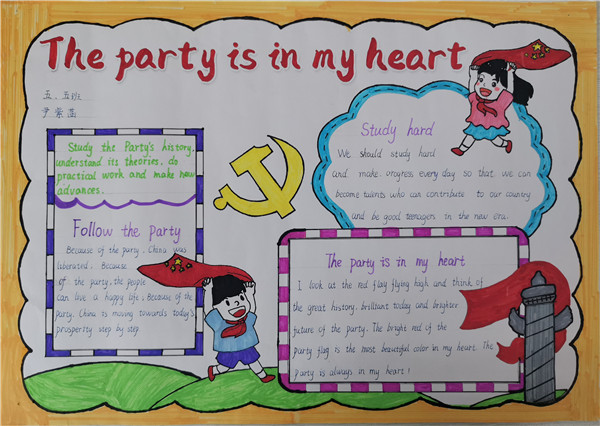 The party is in my heart
五.五班
尹紫菡
Study the Party's history,
understand its theories, do
practical work and make new
advances.
Follow the party
Because of the party, China was
liberated. Because
of the party, the people
can live a happy life; Because of the
party, China is moving towards today's
prosperity step by step
Study hard
We should study hard
and make progress every day so that we can
become talents who can contribute to our country
and be good teenagers in the new era.
The party is in my heart
I look at the red flag flying high and think of
the great history, brilliant today and brighter
future of the party. The bright red of the
party flag is the most beautiful color in my heart. The
party is always in my heart!